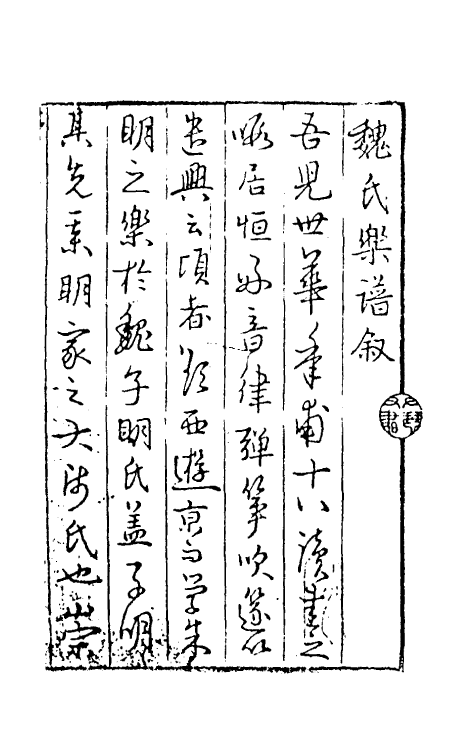 魏氏樂譜敘
吾兄世華年甫十八讀書之
暇居恒好音律彈箏吹篴以
遣興云頃者從西遊京師學朱
明之樂於魏子明氏蓋子明
其先素明家之大師氏也崇